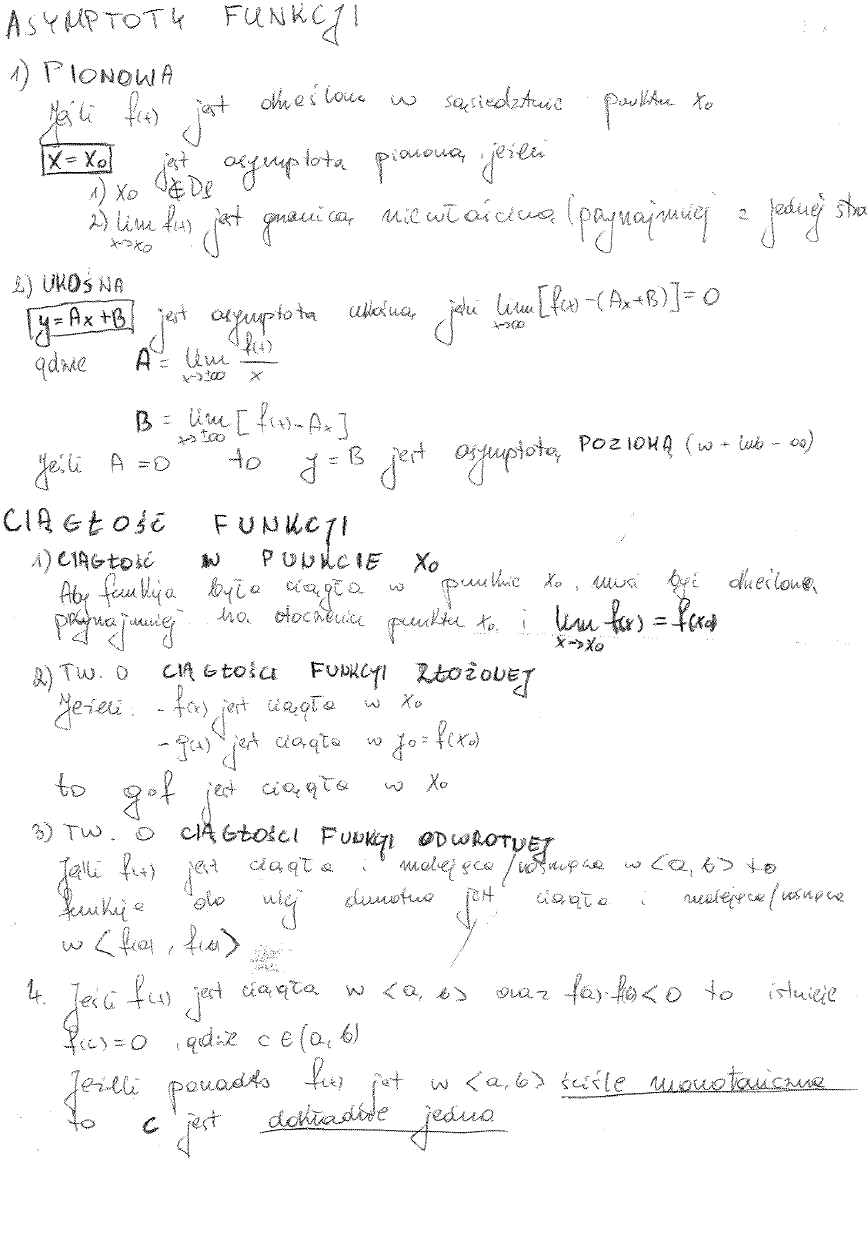 ASYMPTOTY FUNKCJI
1) PIONOWA
Jeśli f(x) jest określona w sąsiedztwie punktu x₀
x = x₀ jest asymptotą pionową, jeżeli
1) x₀ ∉ Df
2) lim x→x₀ f(x) jest granicą niewłaściwą (przynajmniej z jednej stro
2) UKOŚNA
y = Ax + B jest asymptotą ukośną, jeśli lim x→∞ [f(x) - (Ax+B)] = 0
gdzie A = lim x→±∞ f(x)/x
B = lim x→±∞ [f(x) - Ax]
Jeśli A = 0 to y = B jest asymptotą POZIOMĄ (w + lub - ∞)
CIĄGŁOŚĆ FUNKCJI
1) CIĄGŁOŚĆ W PUNKCIE X₀
Aby funkcja była ciągła w punkcie x₀, musi być określona
przynajmniej na otoczeniu punktu x₀ i lim x→x₀ f(x) = f(x₀)
2) TW. O CIĄGŁOŚCI FUNKCJI ZŁOŻONEJ
Jeżeli: - f(x) jest ciągła w x₀
- g(x) jest ciągła w y₀ = f(x₀)
to g∘f jest ciągła w x₀
3) TW. O CIĄGŁOŚCI FUNKCJI ODWROTNEJ
Jeśli f(x) jest ciągła i malejąca/rosnąca w <a, b> to
funkcja do niej odwrotna jest ciągła i malejąca/rosnąca
w <f(a), f(b)>
4. Jeśli f(x) jest ciągła w <a, b> oraz f(a)·f(b) < 0 to istnieje
f(c) = 0, gdzie c ∈ (a, b)
Jeżeli ponadto f(x) jest w <a, b> ściśle monotoniczna
to c jest dokładnie jedno